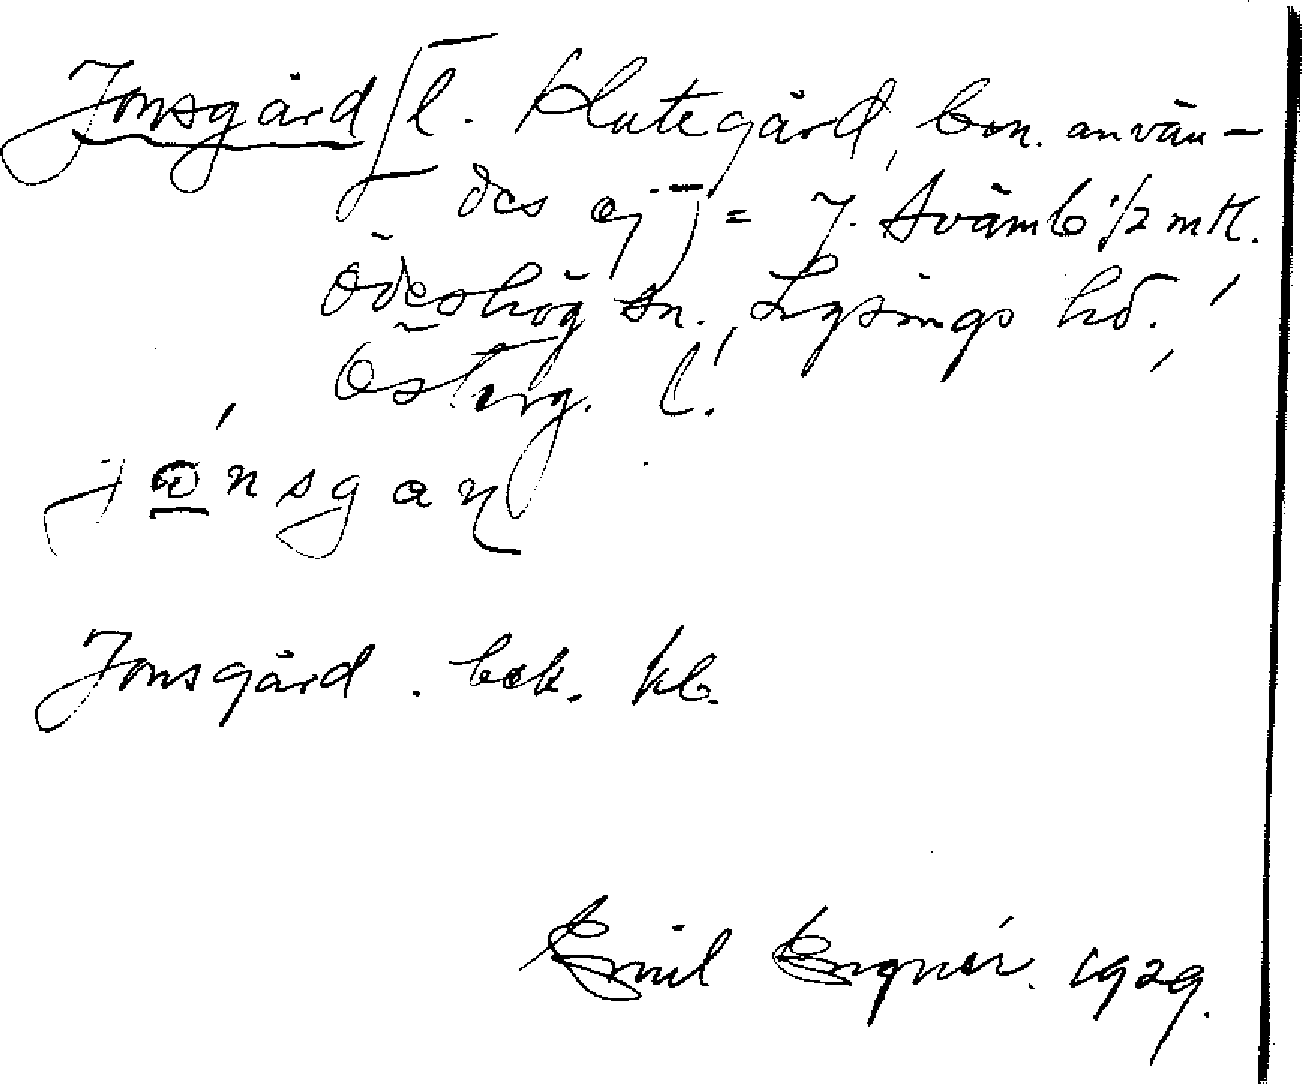 Jonsgård [l. Klutegård, ben. använ-
des ej] = 7. Svämb ½ mtl.
Ödeshög sn., Lysings hd.,
Österg. l.
jɷ́nsgaɳ
Jonsgård. bek. kb.
Emil Engnér. 1929.